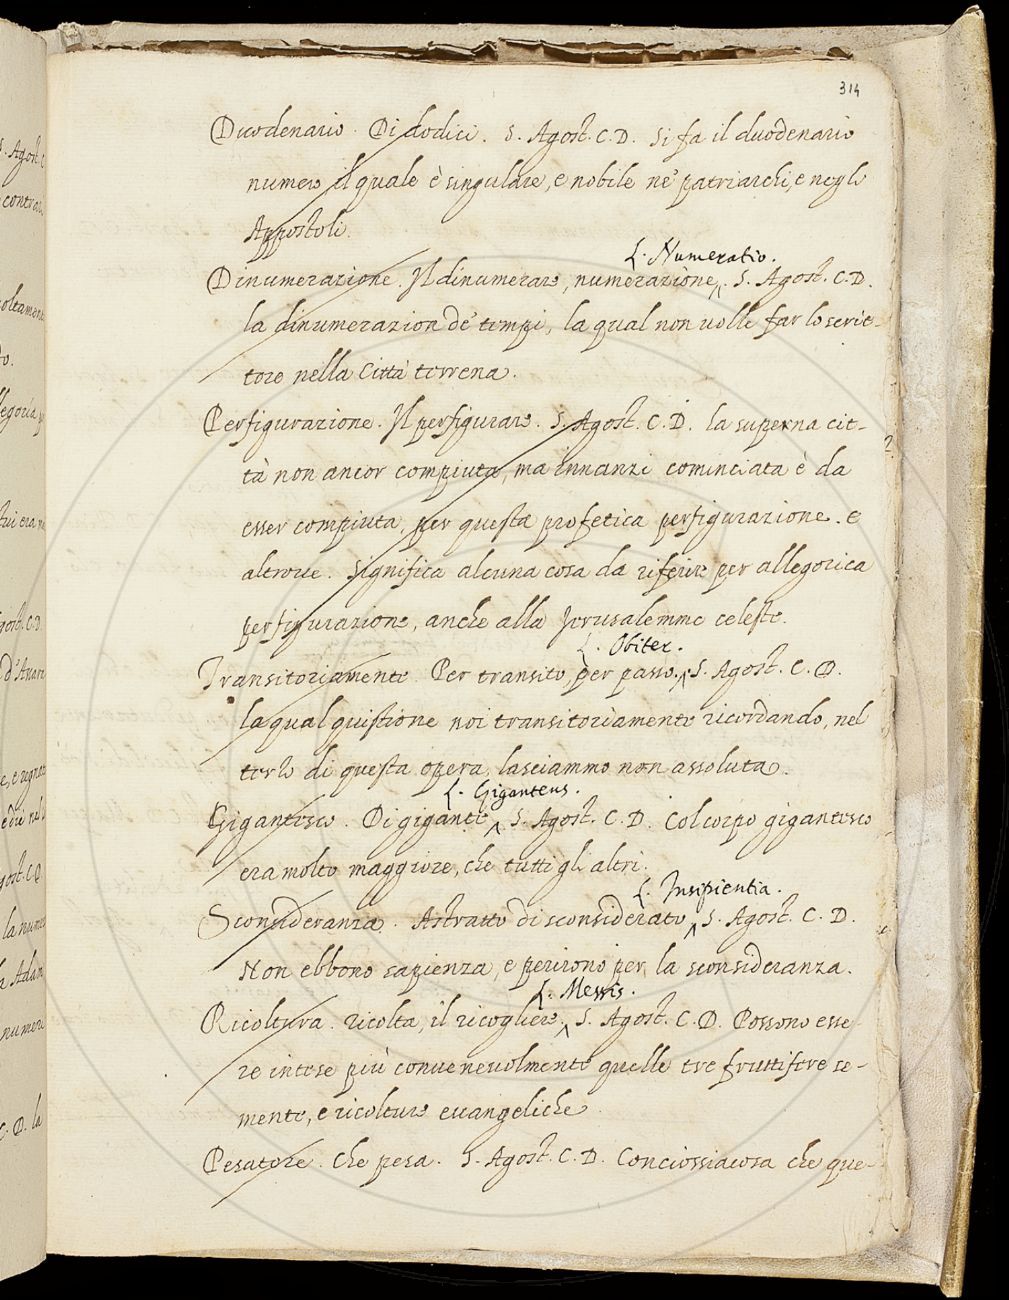 314
Duodenario. Di dodici. S. Agost. C. D. Si fa il duodenario
numero il quale è singulare, e nobile ne' patriarchi, e negli
Appostoli.
L. Numeratio.
Dinumerazione. Il dinumerare, numerazione. S. Agost. C. D.
la dinumerazion de' tempi, la qual non volle far lo scrit-
tore nella Città terrena.
Perfigurazione. Il perfigurare. S. Agost. C. D. la superna cit-
tà non ancor compiuta, ma innanzi cominciata è da
esser compiuta, per questa profetica perfigurazione. e
altrove. Significa alcuna cosa da riferire per allegorica
perfigurazione, anche alla Jerusalemme celeste.
L. Obiter.
Transitoriamente. Per transito, per passo. S. Agost. C. D.
la qual quistione noi transitoriamente ricordando, nel
terzo di questa opera, lasciammo non assoluta.
L. Giganteus.
Gigantesco. Di gigante. S. Agost. C. D. Col corpo gigantesco
era molto maggiore, che tutti gli altri.
L. Insipientia.
Sconsideranza. Astratto di sconsiderato. S. Agost. C. D.
Non ebbono sapienza, e perirono per la sconsideranza.
L. Messis.
Ricoltura. ricolta, il ricogliere. S. Agost. C. D. Possono esse-
re intese più convenevolmente quelle tre fruttifere se-
mente, e ricolture evangeliche.
Pesatore. Che pesa. S. Agost. C. D. Conciossiacosa che que-